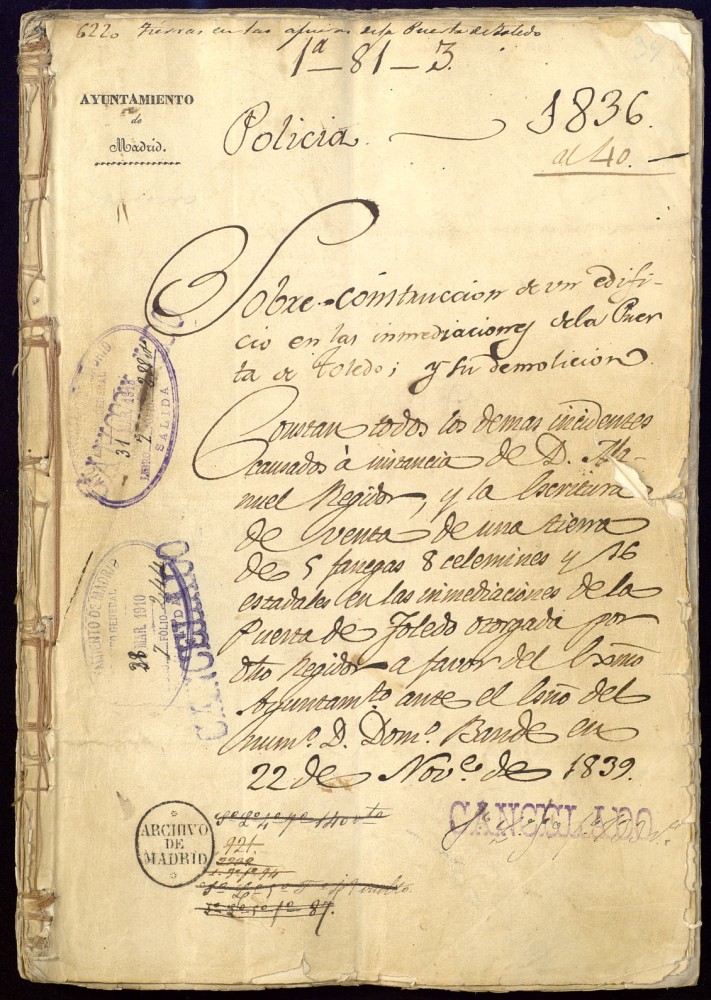 6220 Tierras en las afueras de la Puerta de Toledo
1ª - 81 - 3.
39
AYUNTAMIENTO
de
Madrid.
Policia.
1836.
al 40.
Sobre construccion de un edifi-
cio en las inmediaciones de la Puer
ta de Toledo; y su demolicion.
Constan todos los demas incidentes
causados à instancia de D. Ma-
nuel Regidor, y la Escritura
de venta de una tierra
de 5 fanegas 8 celemines y 16
estadales en las inmediaciones de la
Puerta de Toledo otorgada por
dho Regidor a favor del Exmo
Ayuntamto. ante el Esno del
numo. D. Domo. Bande en
22 de Nove. de 1839.
31
1910
LIBRO 7
SALIDA
CANCELADO
AYUNTAMIENTO DE MADRID
GENERAL
28 MAR. 1910
7 FOLIO 244
SALIDA
CANCELADO
ARCHIVO
DE
MADRID
921.
87.
CANCELADO